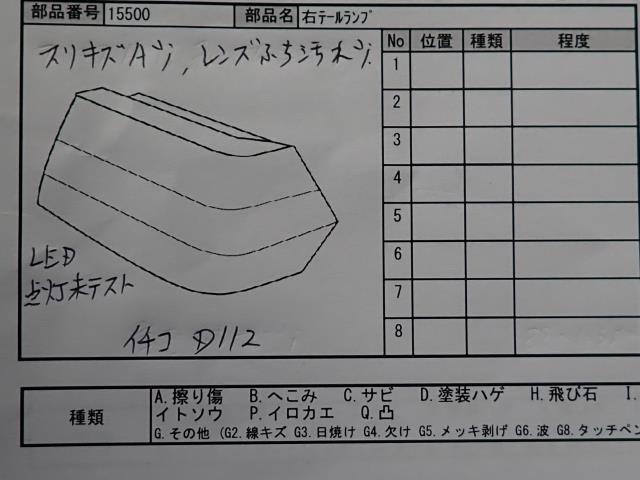 部品番号 15500 部品名 右テールランプ
スリキズAツ, レンズふち汚れツ.
No 位置 種類 程度
1
2
3
4
5
6
7
8
LED
点灯未テスト
イチコ D112
種類
A.擦り傷 B.へこみ C.サビ D.塗装ハゲ H.飛び石 I.
イトソウ P.イロカエ Q.凸
G.その他 (G2.線キズ G3.日焼け G4.欠け G5.メッキ剥げ G6.波 G8.タッチペン